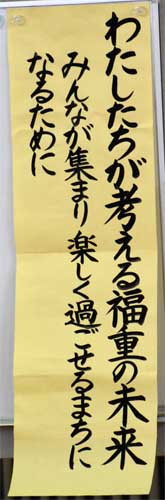 わたしたちが考える福重の未来
みんなが集まり楽しく過ごせるまちに
なるために